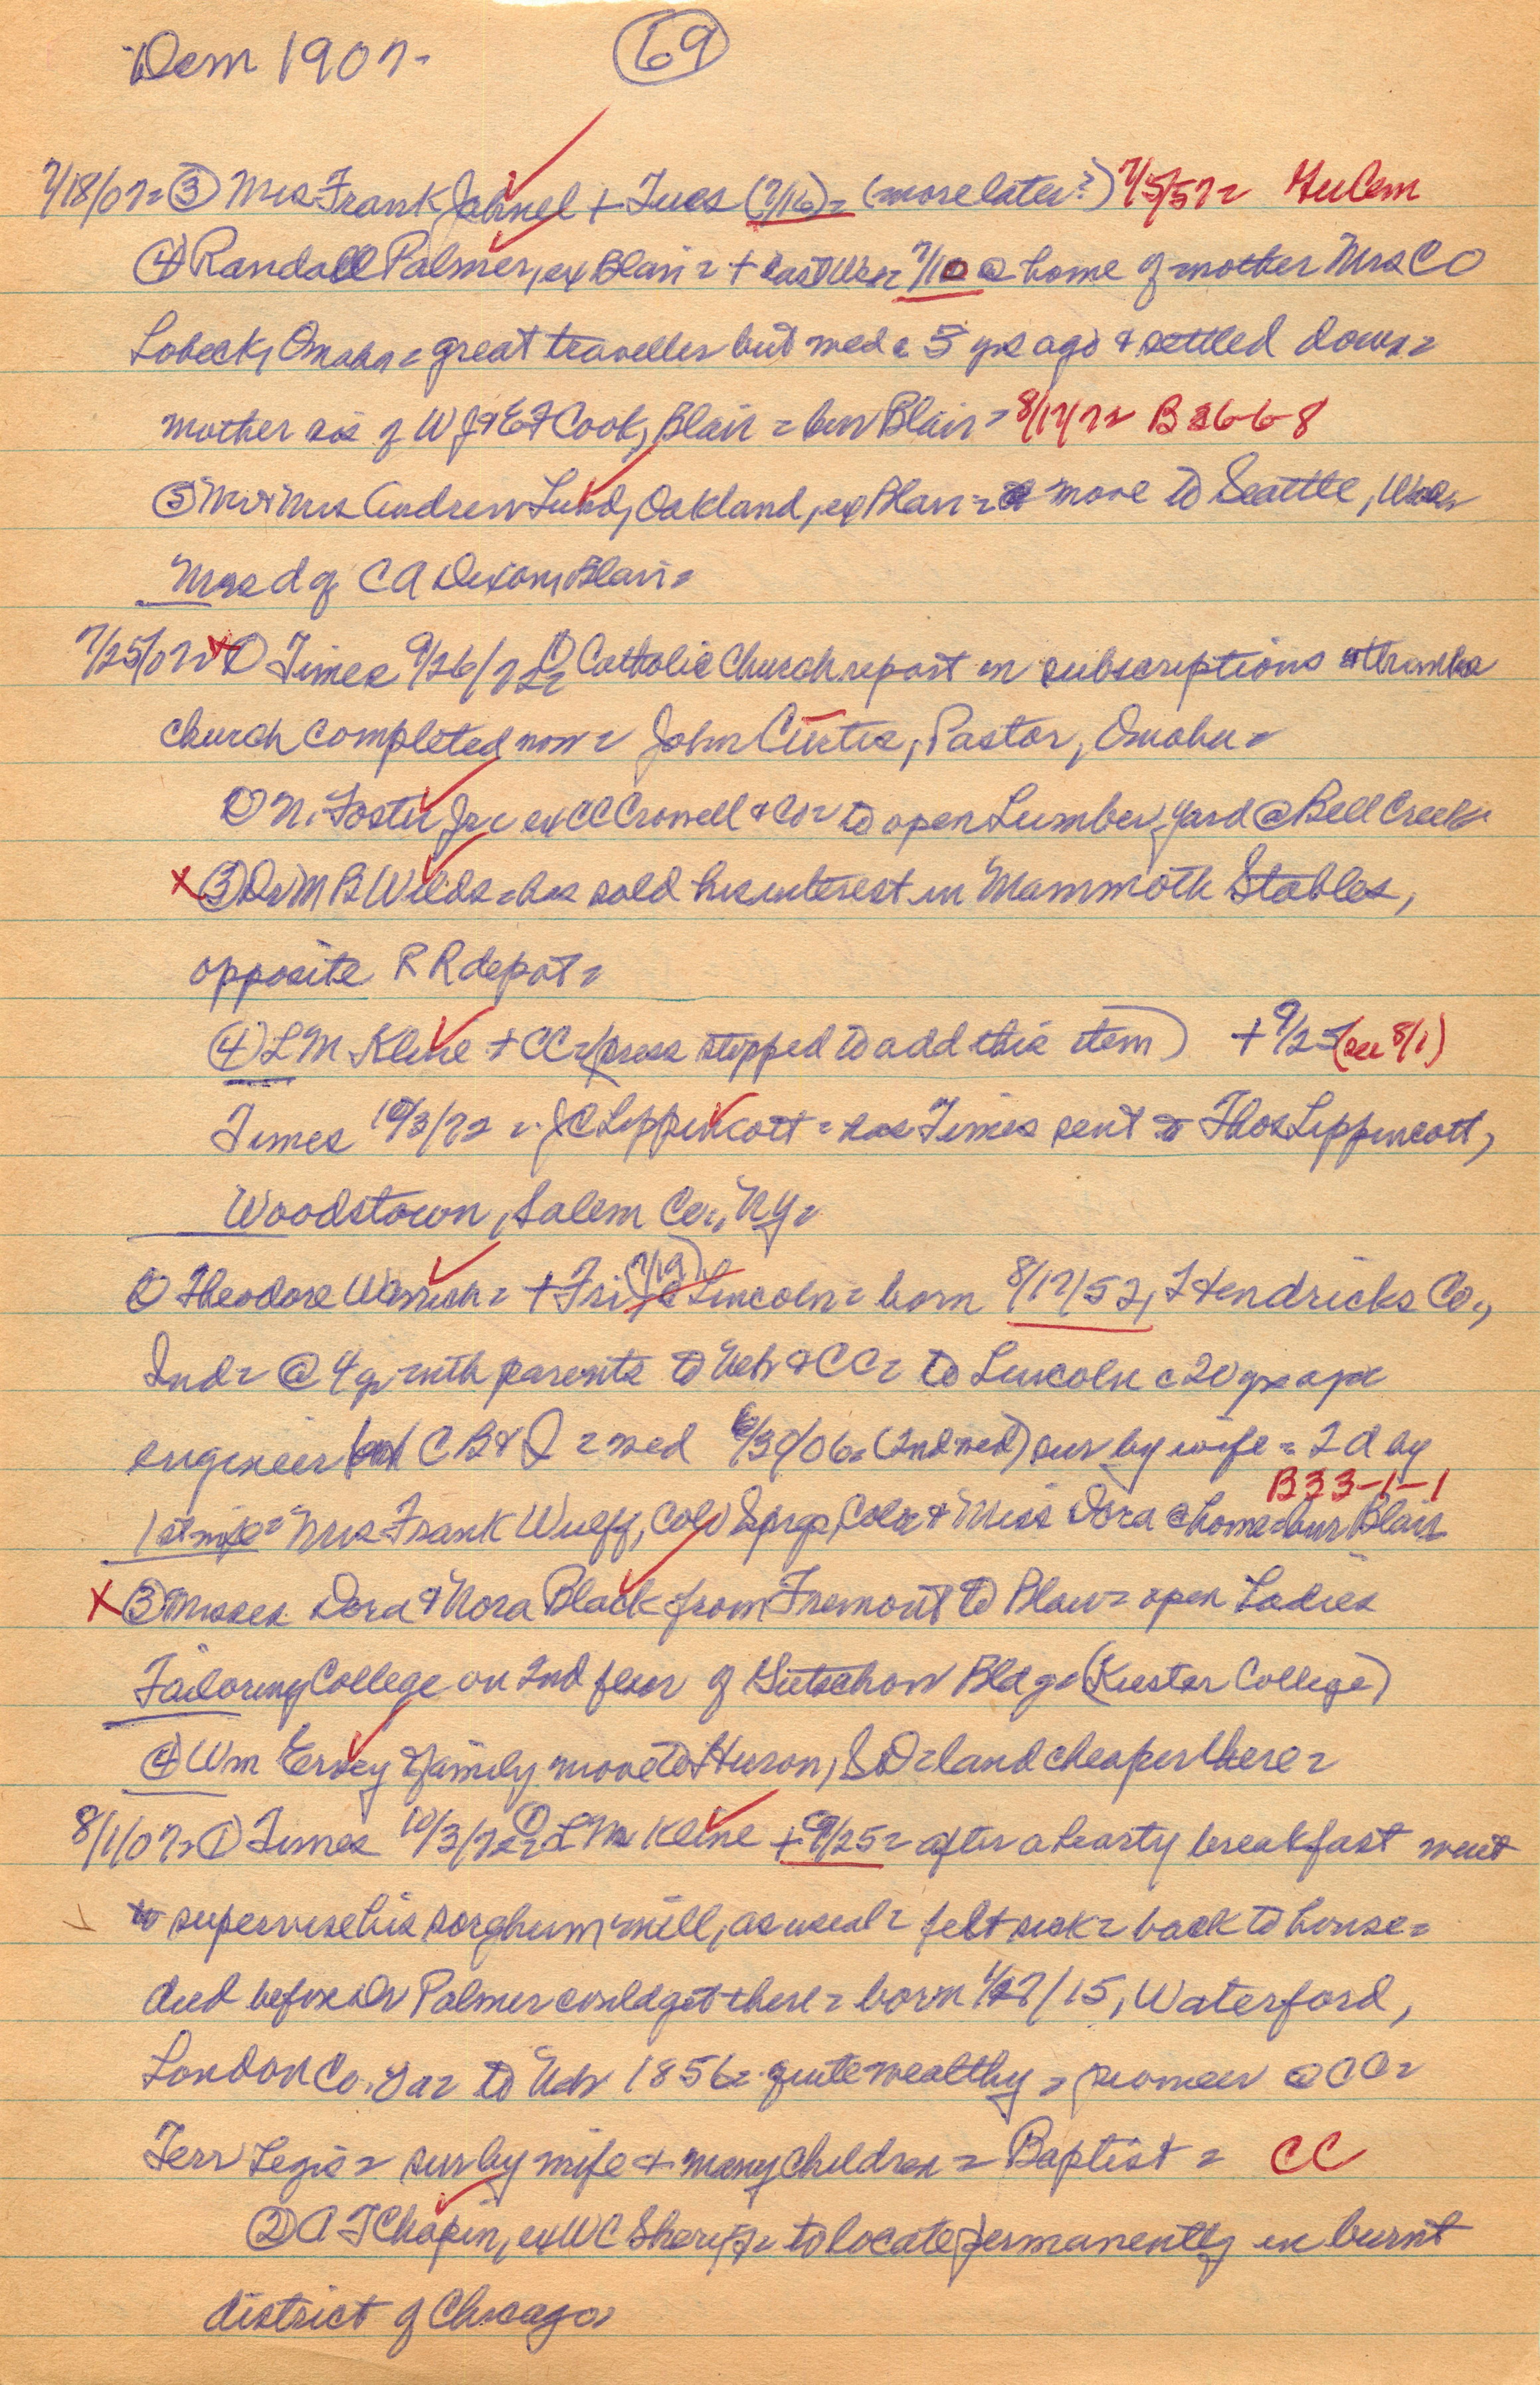 Dem 1907- 69
7/18/07= ③ Mrs Frank Jahnel + Tues (7/16)= (more later?) 7/5/57=
④ Randall Palmer, ex Blair = + last Wed= 7/10 @ home of mother Mrs C O
Lobeck, Omaha = great traveller but wed c 5 yrs ago & settled down=
mother sis of W J & E F Cook, Blair = bur Blair = 8/17/7= B 26-6-8
⑤ Mr & Mrs Andrew Lund, Oakland, ex Blair = move to Seattle, Wash
Mrs d of C A Dixon, Blair=
7/25/07= x ① Times 9/26/72= ① Catholic Church report on subscriptions & thanks
church completed now = John Curtis, Pastor, Omaha=
② N. Foster Jr= ex CC Crowell & Co= to open Lumber yard @ Bell Creek
x ③ Dr M B Wilds = has sold his interest in Mammoth Stables,
opposite R R depot=
④ L M Kline + CC= (press stopped to add this item) + 9/25 (see 8/1)
Times 10/3/72 = J C Lippincott = has Times sent to Thos Lippincott,
Woodstown, Salem Co., NJ=
② Theodore = + Fri (7/19) @ Lincoln = born 8/17/52, Hendricks Co.,
Ind= @ 4 y with parents to Neb & CC= to Lincoln c 20 yrs ago
engineer on C B & Q = wed 6/30/06= (2nd wed) sur by wife = 2 d by
B33-1-1
1st wife= Mrs Frank Wulff, Colo Sprgs, Colo & Miss Dora @ home = bur Blair
x ③ Misses Dora & Nora Black from Fremont to Blair= open Ladies
Tailoring College on 2nd floor of Gutschow Bldg= (Kuster College)
④ Wm Ervey & family move to Huron, S D= land cheaper there=
8/1/07= ① Times 10/3/72= ① L M Kline + 9/25= after a hearty breakfast went
to supervise his sorghum mill, as usual = felt sick = back to house=
died before Dr Palmer could get there = born 4/27/15, Waterford,
London Co. Va= to Neb 1856= quite wealthy = pioneer @ CC=
Terr Legis = sur by wife & many children = Baptist = CC
② A T Chapin, ex W C Sheriff= to locate permanently in burnt
district of Chicago=